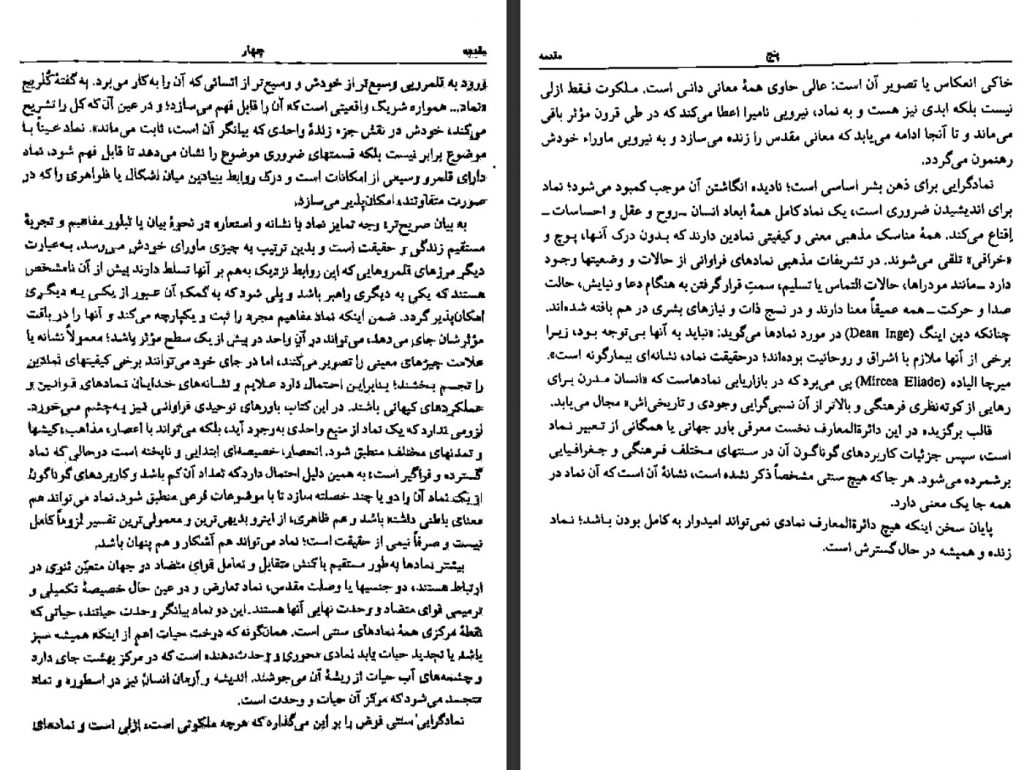 مقدمه
چهار
ورود به قلمرویی وسیع‌تر از خودش و وسیع‌تر از انسانی که آن را به‌کار می‌برد. به گفتهٔ کُلریج
«نماد... همواره شریک واقعیتی است که آن را قابل فهم می‌سازد؛ و در عین آن‌که کل را تشریح
می‌کند، خودش در نقش جزء زندهٔ واحدی که بیانگر آن است، ثابت می‌ماند». نماد عیناً با
موضوع برابر نیست بلکه قسمتهای ضروری موضوع را نشان می‌دهد تا قابل فهم شود. نماد
دارای قلمرو وسیعی از امکانات است و درک روابط بنیادین میان اشکال یا ظواهری را که در
صورت متفاوتند، امکان‌پذیر می‌سازد.
به بیان صریح‌تر، وجه تمایز نماد با نشانه و استعاره در نحوهٔ بیان یا تبلور مفاهیم و تجربهٔ
مستقیم زندگی و حقیقت است و بدین ترتیب به چیزی ماورای خودش می‌رسد. به‌عبارت
دیگر مرزهای قلمروهایی که این روابط نزدیک به‌هم بر آنها تسلط دارند پیش از آن نامشخص
هستند که یکی به دیگری راهبر باشد و پلی شود که به کمک آن عبور از یکی به دیگری
امکان‌پذیر گردد. ضمن اینکه نماد مفاهیم مجرد را ثبت و یکپارچه می‌کند و آنها را در بافت
مؤثرشان جای می‌دهد، می‌تواند در آنِ واحد در بیش از یک سطح مؤثر باشد؛ معمولاً نشانه یا
علامت چیزهای معینی را تصویر می‌کنند، اما در جای خود می‌توانند برخی کیفیتهای نمادین
را تجسم بخشند؛ بنابراین احتمال دارد علایم و نشانه‌های خدایان نمادهای قوانین و
عملکردهای کیهانی باشند. در این کتاب باورهای توحیدی فراوانی نیز به‌چشم می‌خورد.
لزومی ندارد که یک نماد از منبع واحدی به‌وجود آید، بلکه می‌تواند با اعصار، مذاهب، کیشها
و تمدنهای مختلف منطبق شود. انحصار، خصیصه‌ای ابتدایی و ناپخته است درحالی که نماد
گسترده و فراگیر است؛ به همین دلیل احتمال دارد که تعداد آن کم باشد و کاربردهای گوناگون
از یک نماد آن را دو یا چند خصلته سازد تا با موضوعات فرعی منطبق شود. نماد می‌تواند هم
معنای باطنی داشته باشد و هم ظاهری، از اینرو بدیهی‌ترین و معمولی‌ترین تفسیر لزوماً کامل
نیست و صرفاً نیمی از حقیقت است؛ نماد می‌تواند هم آشکار و هم پنهان باشد.
بیشتر نمادها به‌طور مستقیم با کنش متقابل و تعامل قوای متضاد در جهان متعیّن ثنوی در
ارتباط هستند، دو جنسیها یا وصلت مقدس، نماد تعارض و در عین حال خصیصهٔ تکمیلی و
ترمیمی قوای متضاد و وحدت نهایی آنها هستند. این دو نماد بیانگر وحدت حیاتند، حیاتی که
نقطهٔ مرکزی همهٔ نمادهای سنتی است. همان‌گونه که درخت حیات اعم از اینکه همیشه سبز
باشد یا تجدید حیات یابد نمادی محوری و وحدت‌دهنده است که در مرکز بهشت جای دارد
و چشمه‌های آب حیات از ریشهٔ آن می‌جوشند. اندیشه و آرمان انسان نیز در اسطوره و نماد
متجسد می‌شود که مرکز آن حیات و وحدت است.
نمادگرایی سنتی فرض را بر این می‌گذارد که هرچه ملکوتی است، ازلی است و نمادهای
پنج
مقدمه
خاکی انعکاس یا تصویر آن است: عالی حاوی همهٔ معانی دانی است. ملکوت فقط ازلی
نیست بلکه ابدی نیز هست و به نماد، نیرویی نامیرا اعطا می‌کند که در طی قرون مؤثر باقی
می‌ماند و تا آنجا ادامه می‌یابد که معانی مقدس را زنده می‌سازد و به نیرویی ماوراء خودش
رهنمون می‌گردد.
نمادگرایی برای ذهن بشر اساسی است؛ نادیده انگاشتن آن موجب کمبود می‌شود؛ نماد
برای اندیشیدن ضروری است، یک نماد کامل همهٔ ابعاد انسان ــ روح و عقل و احساسات ــ
اِقناع می‌کند. همهٔ مناسک مذهبی معنی و کیفیتی نمادین دارند که بدون درک آنها، پوچ و
«خرافی» تلقی می‌شوند. در تشریفات مذهبی نمادهای فراوانی از حالات و وضعیتها وجود
دارد ــ مانند مودراها، حالات التماس یا تسلیم، سمتِ قرار گرفتن به هنگام دعا و نیایش، حالت
صدا و حرکت ــ همه عمیقاً معنا دارند و در نسج ذات و نیازهای بشری در هم بافته شده‌اند.
چنانکه دین اینگ (Dean Inge) در مورد نمادها می‌گوید: «نباید به آنها بی‌توجه بود، زیرا
برخی از آنها ملازم با اشراق و روحانیت بوده‌اند؛ درحقیقت نماد، نشانه‌ای بیمارگونه است».
میرچا الیاده (Mircea Eliade) پی می‌برد که در بازاریابی نمادهاست که «انسان مدرن برای
رهایی از کوته‌نظری فرهنگی و بالاتر از آن نسبی‌گرایی وجودی و تاریخی‌اش» مجال می‌یابد.
قالب برگزیده در این دائرةالمعارف نخست معرفی باور جهانی یا همگانی از تعبیر نماد
است، سپس جزئیات کاربردهای گوناگون آن در سنتهای مختلف فرهنگی و جغرافیایی
برشمرده می‌شود. هر جا که هیچ سنتی مشخصاً ذکر نشده است، نشانهٔ آن است که آن نماد در
همه جا یک معنی دارد.
پایان سخن اینکه هیچ دائرةالمعارف نمادی نمی‌تواند امیدوار به کامل بودن باشد؛ نماد
زنده و همیشه در حال گسترش است.